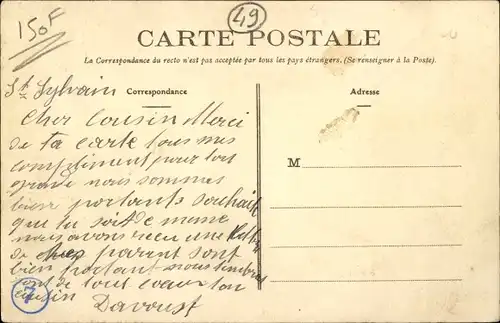 150F
49
CARTE POSTALE
La Correspondance du recto n'est pas acceptée par tous les pays étrangers. (Se renseigner à la Poste).
Correspondance
Adresse
M
St Sylvain
Cher Cousin Merci
de ta carte tous mes
compliment pour ton
grade nous sommes
bien portants souhaite
que tu soit de meme
nous avons recu une
de parent sont
bien portant nous
de tout coeur ton
cousin Davoust
7